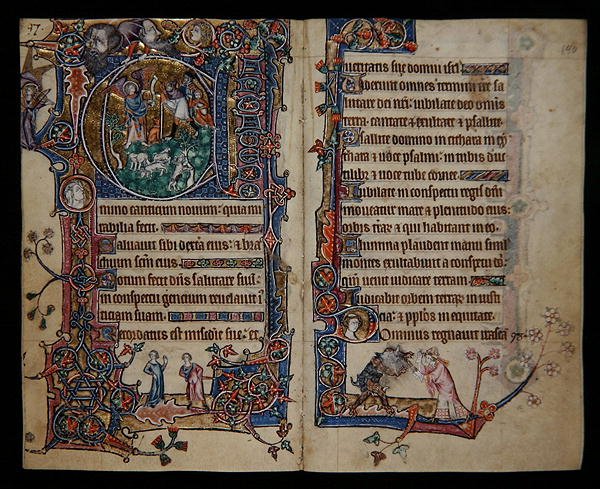 97.
mino canticum nouum: quia mi
rabilia fecit.
Saluauit sibi dext̃a eius: & bra
chium sc̃m eius.
Notum fecit dñs salutare suũ:
in conspectu gencium reuelauit i
ticiam suam.
Recordatus est mis̃cdie sue: et
140
ueritatis sue domui isr̃l
Uiderunt omnes termini tr̃e sa
lutare dei nr̃i: iubilate deo omĩs
terra. cantate & exultate & psallite.
Psallite domino in cithara in cy
thara & uoce psalmi: in tubis duc
tilibꝰ & uoce tube cornee.
Iubilate in conspectu regis dñi
moueatur mare & plenitudo eius:
orbis trar̃ & qui habitant in eo.
Flumina plaudent manu simul
montes exultabunt a conspectu
qm̃ uenit iudicare terram.
Iudicabit orbem terrar̃ in iusti
cia: & pp̃los in equitate.
Dominus regnauit irasca 98.